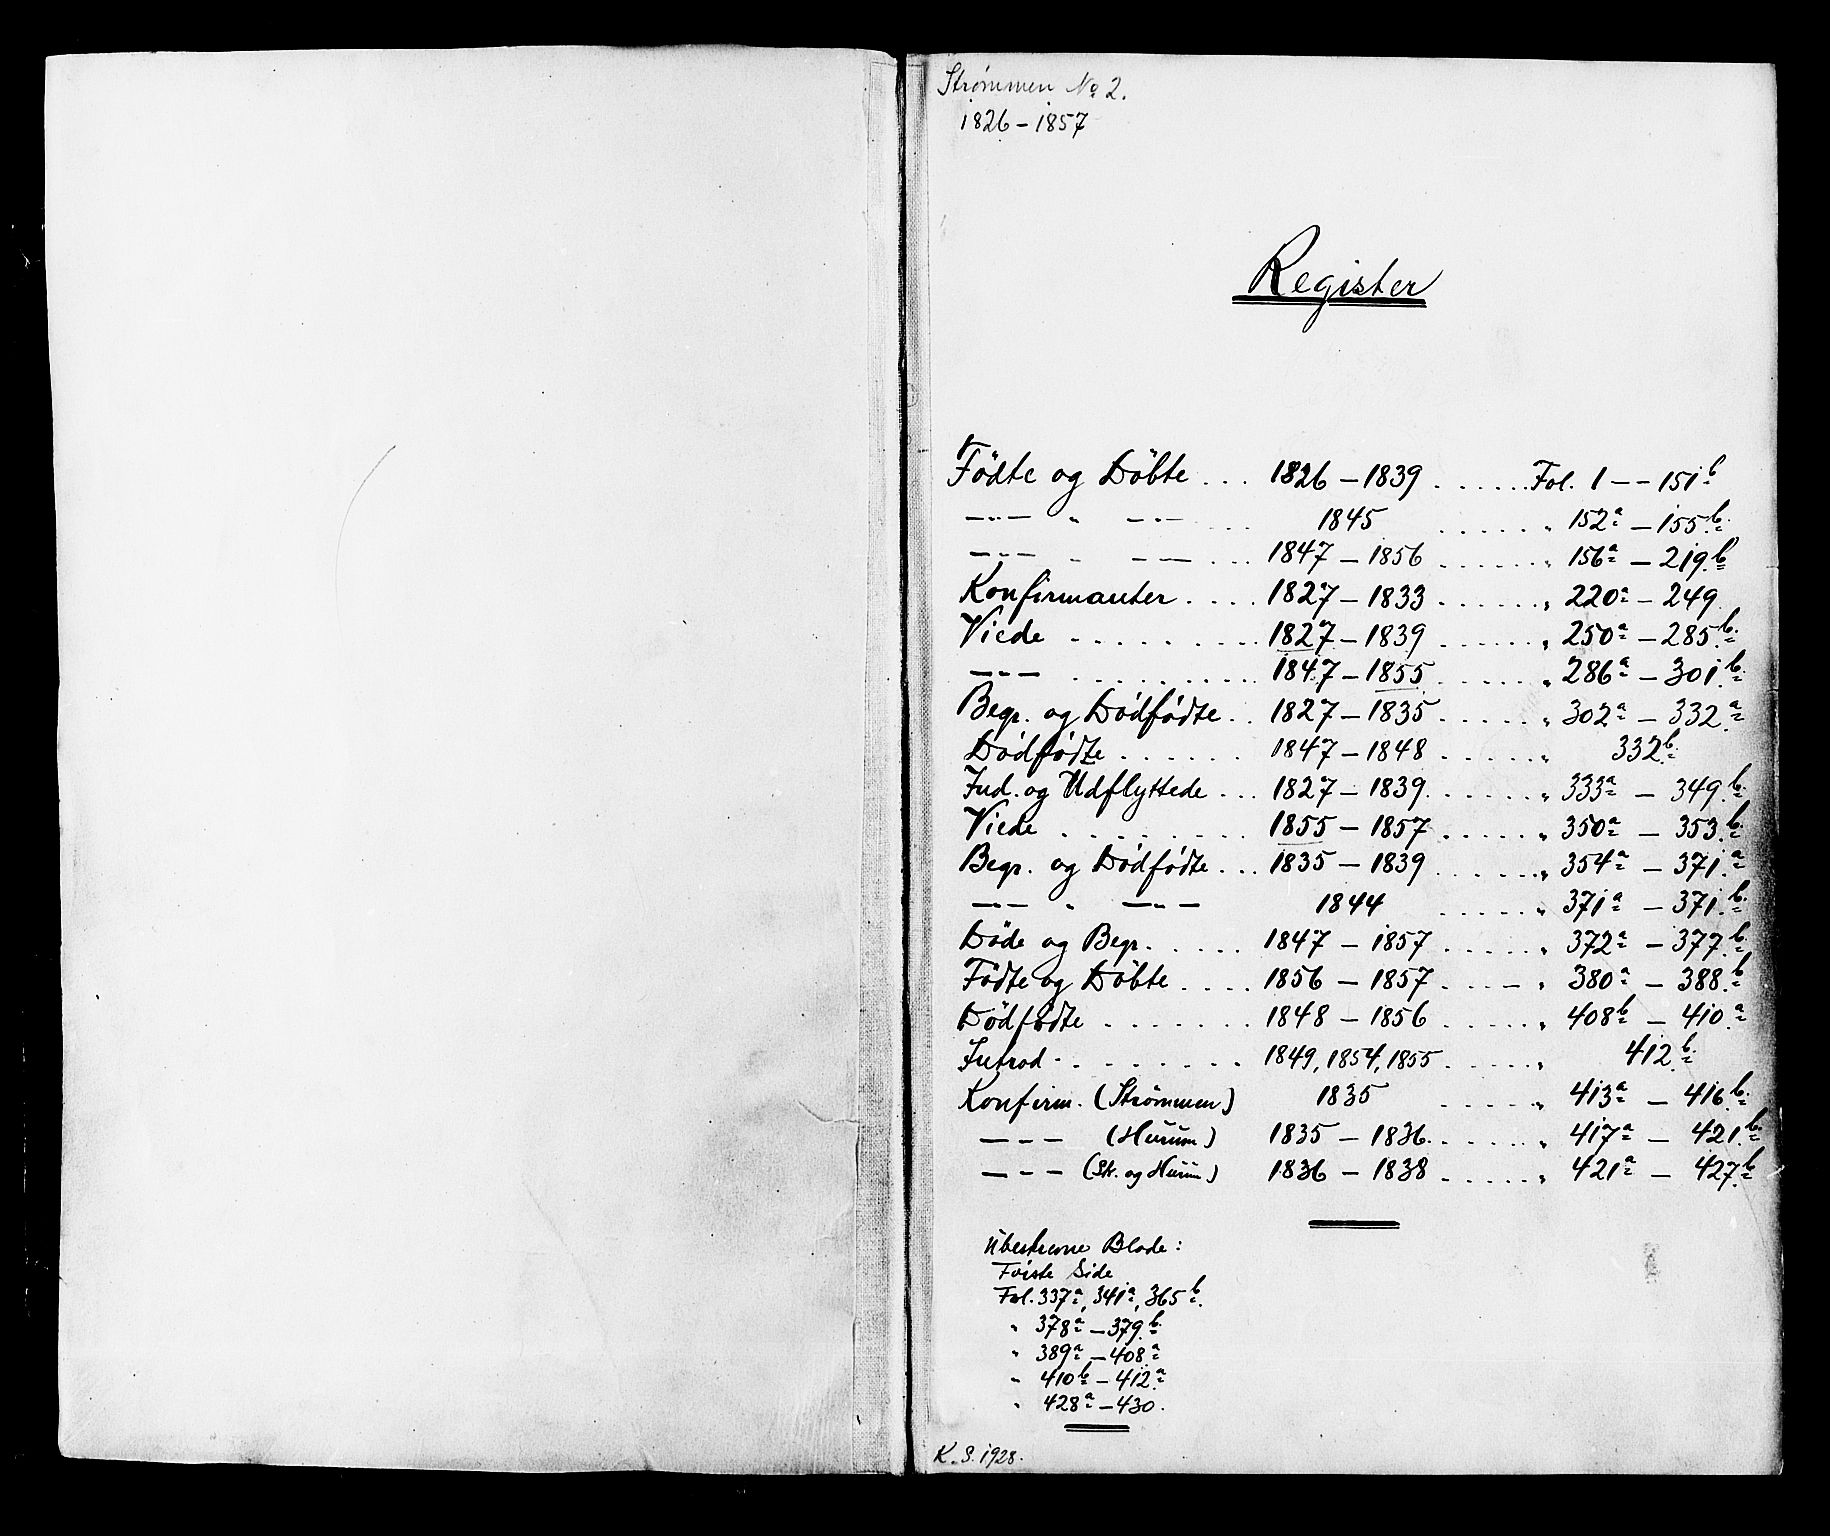 Strømmen No 2.
1826 – 1857
Register
Födte og Döbte ... 1826 – 1839 ...... Fol. 1 – – 151 b
—"— " —"— ... 1845 ...... " 152 a – 155 b.
—"— " —"— ... 1847 – 1856 ...... " 156 a – 219 b
Konfirmanter .... 1827 – 1833 ...... " 220 a – 249
Viede ......... 1827 – 1839 ...... " 250 a – 285 b.
—"— ......... 1847 – 1855 ...... " 286 a – 301 b.
Begr. og Dödfödte .. 1827 – 1835 ...... " 302 a – 332 a
Dödfödte ...... 1847 – 1848 ...... " 332 b.
Ind. og Udflyttede ... 1827 – 1839 ...... " 333 a – 349 b.
Viede ........ 1855 – 1857 ...... " 350 a – 353 b.
Begr. og Dödfödte ... 1835 – 1839 ...... " 354 a – 371 a
—"— " —"— 1844 ...... " 371 a – 371 b.
Döde og Begr. ..... 1847 – 1857 ...... " 372 a – 377 b.
Födte og Döbte .... 1856 – 1857 ...... " 380 a – 388 b
Dödfödte ....... 1848 – 1856 ...... " 408 b – 410 a
Introd. ........ 1849, 1854, 1855 ...... " 412 b.
Konfirm. (Strømmen) 1835 ...... " 413 a – 416 b.
– – – (Hurum) 1835 – 1836 ...... " 417 a – 421 b
– – – (Str. og Hurum) 1836 – 1838 ...... " 421 a – 427 b
Ubeskrevne Blade:
Første Side
Fol. 337 a, 341 a, 365 b.
" 378 a – 379 b.
" 389 a – 408 a
" 410 b – 412 a
" 428 a – 430.
K. S. 1928.